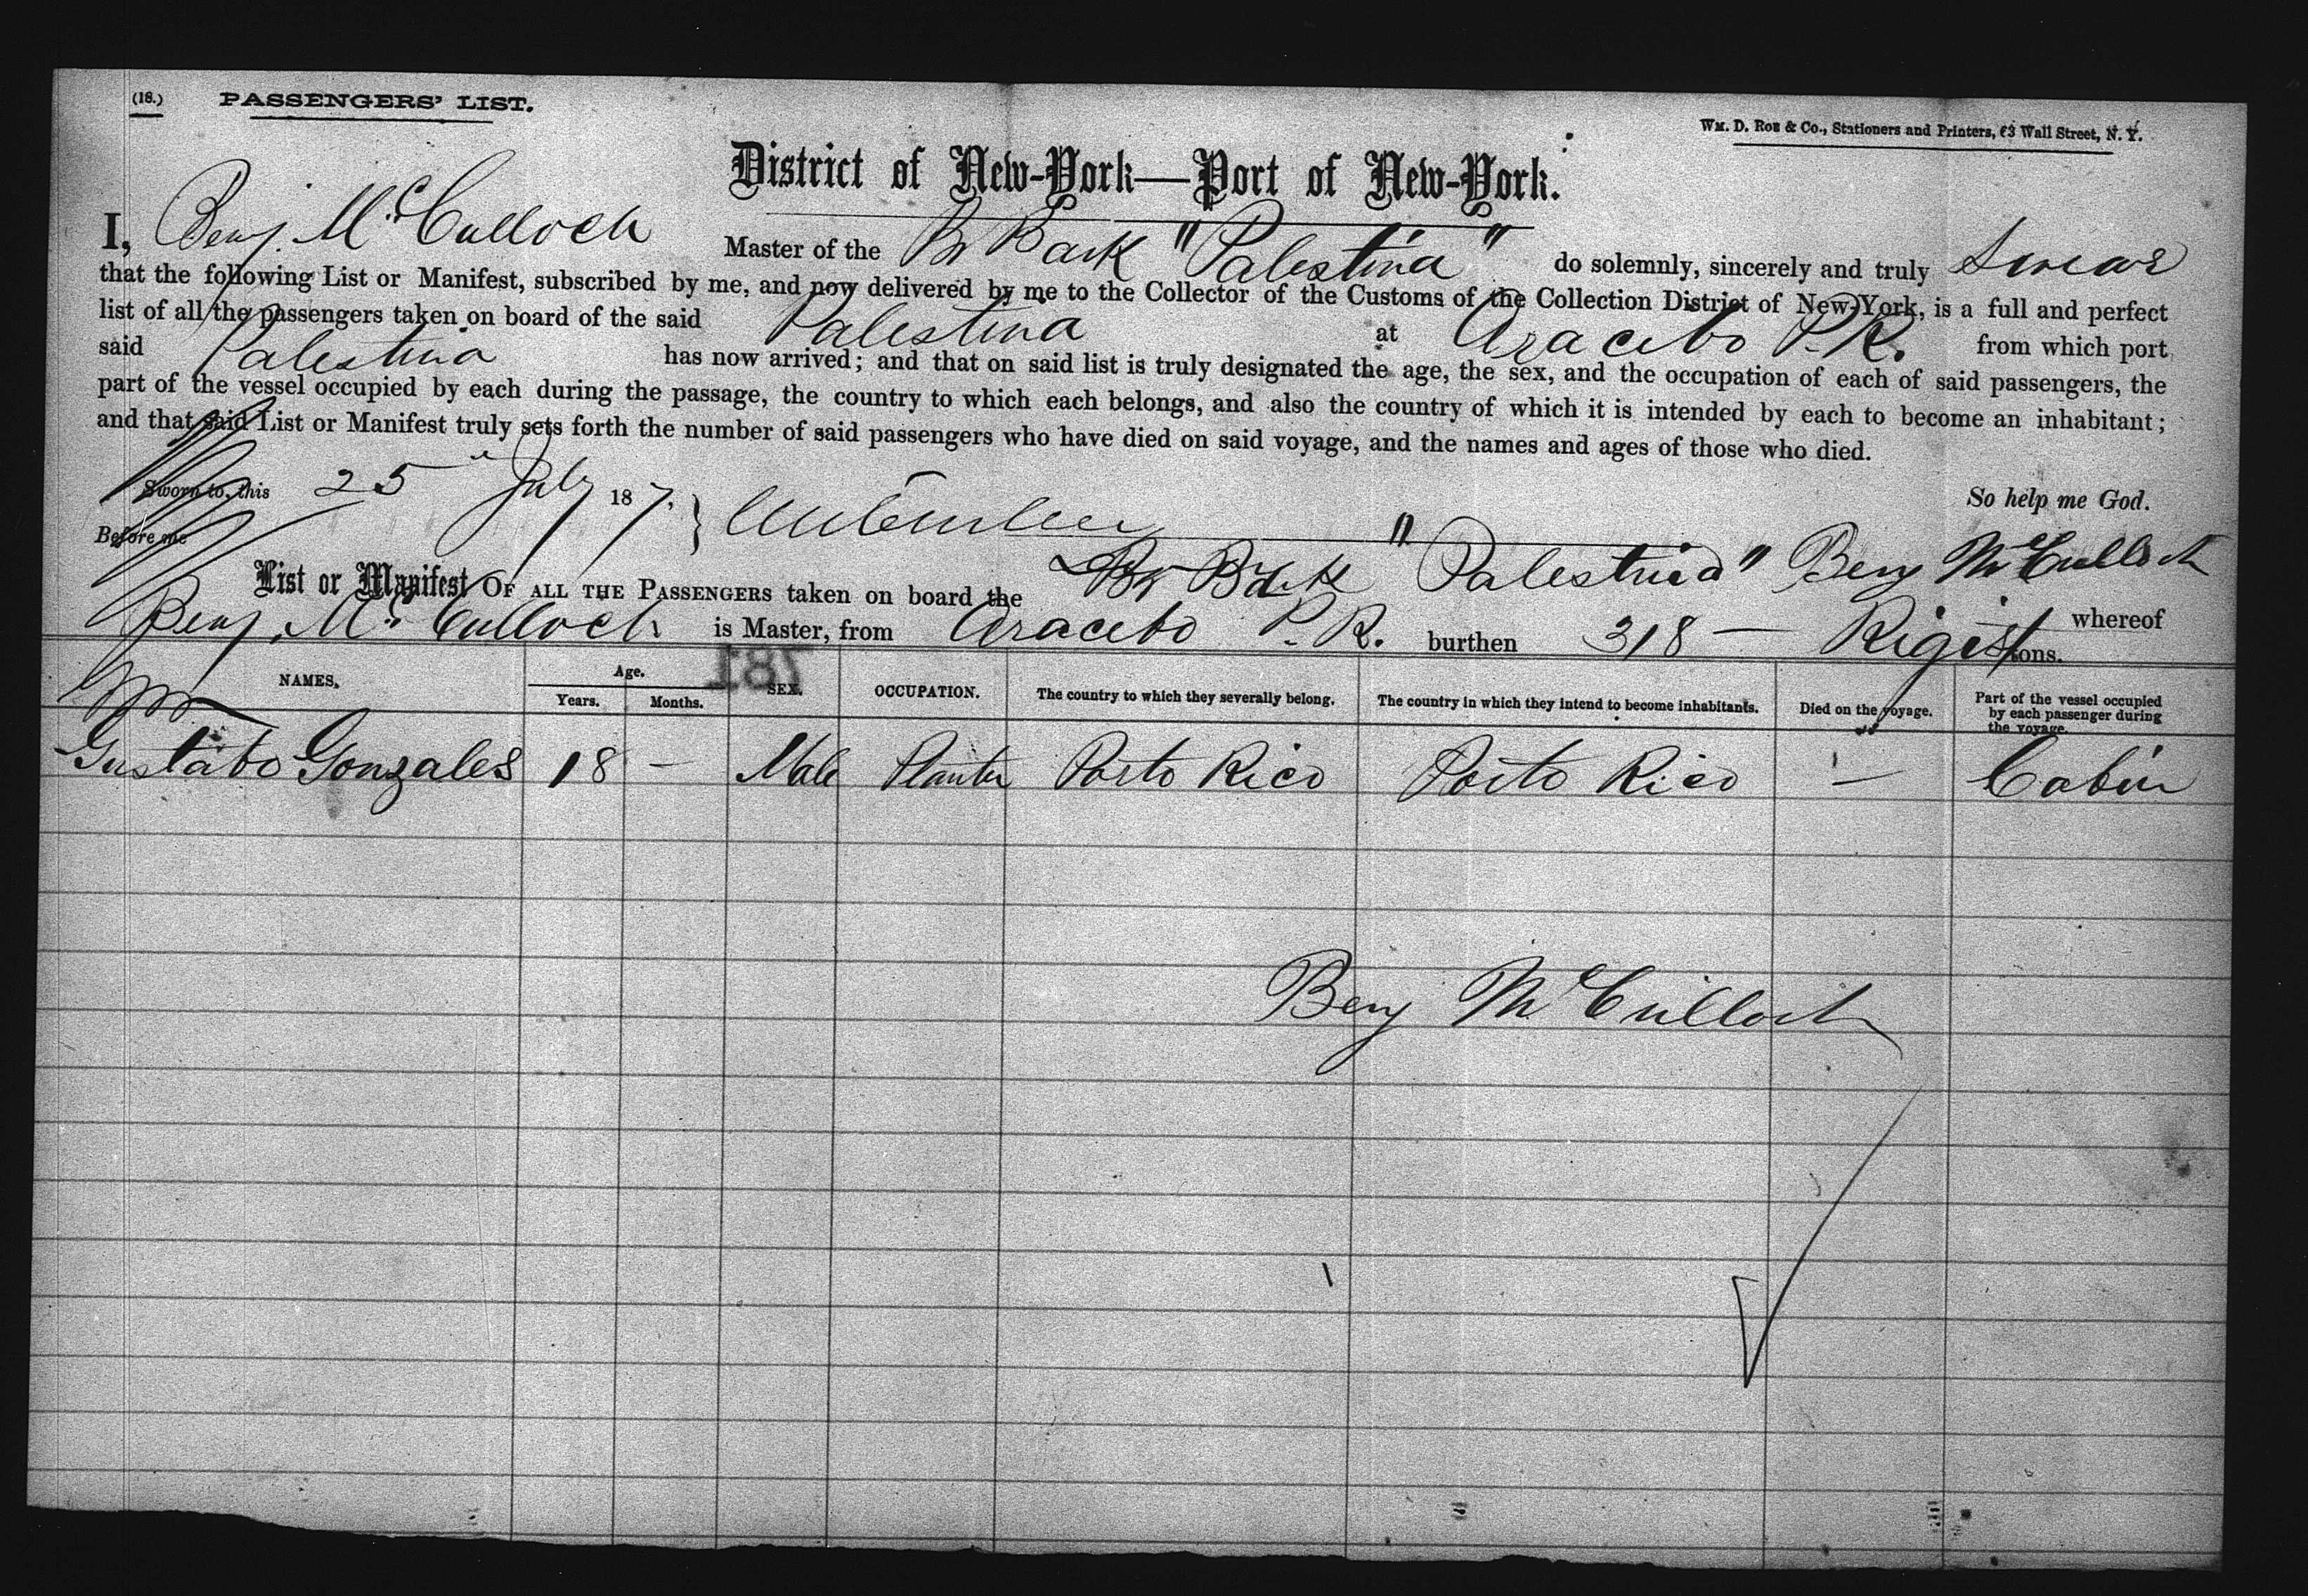 (18.) PASSENGERS' LIST.
Wm. D. Roe & Co., Stationers and Printers, 63 Wall Street, N. Y.
District of New-York—Port of New-York.
I, Benj. McCulloch Master of the Br Bark "Palestina" do solemnly, sincerely and truly Swear
that the following List or Manifest, subscribed by me, and now delivered by me to the Collector of the Customs of the Collection District of New-York, is a full and perfect
list of all the passengers taken on board of the said Palestina at Aracebo P.R. from which port
said Palestina has now arrived; and that on said list is truly designated the age, the sex, and the occupation of each of said passengers, the
part of the vessel occupied by each during the passage, the country to which each belongs, and also the country of which it is intended by each to become an inhabitant;
and that said List or Manifest truly sets forth the number of said passengers who have died on said voyage, and the names and ages of those who died.
Sworn to, this 25 July 187. So help me God.
Before me Benj McCulloch
List or Manifest OF ALL THE PASSENGERS taken on board the Br Bark "Palestina" whereof
Benj. McCulloch is Master, from Aracebo P.R. burthen 318 — tons.
781
NAMES. Age. Years. Months. SEX. OCCUPATION. The country to which they severally belong. The country in which they intend to become inhabitants. Died on the voyage. Part of the vessel occupied by each passenger during the voyage.
Gustabo Gonzales 18 — Male Planter Porto Rico Porto Rico — Cabin
Benj McCulloch